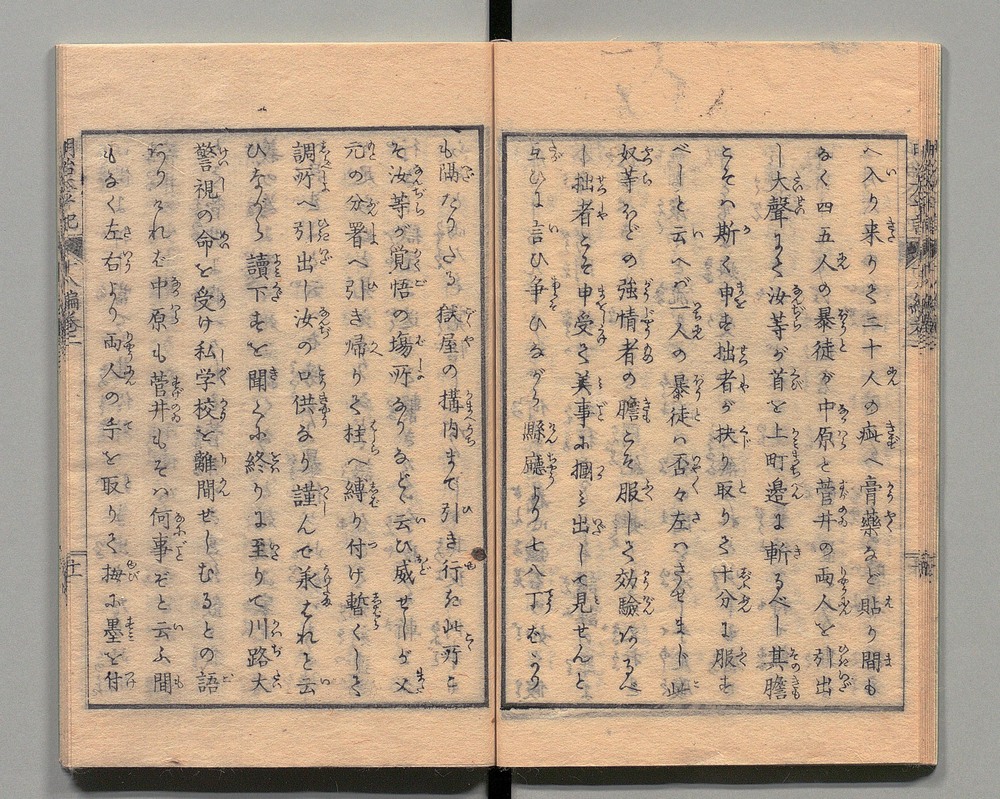 へ入り来りて二十人の疵へ膏藥など貼り間も
なく四五人の暴徒が中原と菅井の両人を引出
し大聲にて汝等が首を上町邉に斬るべし其膽
こそハ斯く申す拙者が抉り取りて十分に服す
べしと云へバ一人の暴徒ハ否々左ハさせまじ此
奴等などの強情者の膽こそ服して効驗あるべ
し拙者こそ申受て美事に摑み出して見せんと
互ひに言ひ争ひながら縣廳より七八丁むかう
も隔たりたる獄屋の構内まで引き行き此所こ
そ汝等が覚悟の塲所なりなどゝ云ひ威せしが又
元の分署へ引き帰りて柱へ縛り付け暫くして
調所へ引出し汝の口供なり謹んで承はれと云
ひながら讀下すを聞くに終りに至りて川路大
警視の命を受け私学校を離間せしむるとの語
ありけれバ中原も菅井もそハ何事ぞと云ふ間
もなく左右より両人の手を取りて拇に墨を付
明治太平記
十八編巻二
十一